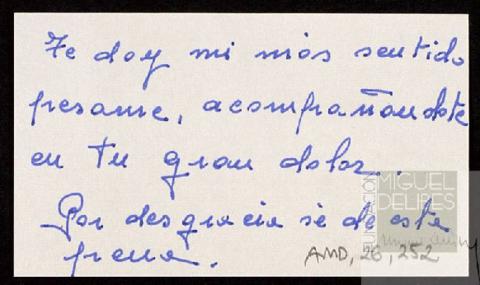 Te doy mi más sentido
pesame, acompañandote
en tu gran dolor..
Por desgracia sé de esta
pena.
AMD, 26, 252
FUNDACIÓN
MIGUEL
DELIBES